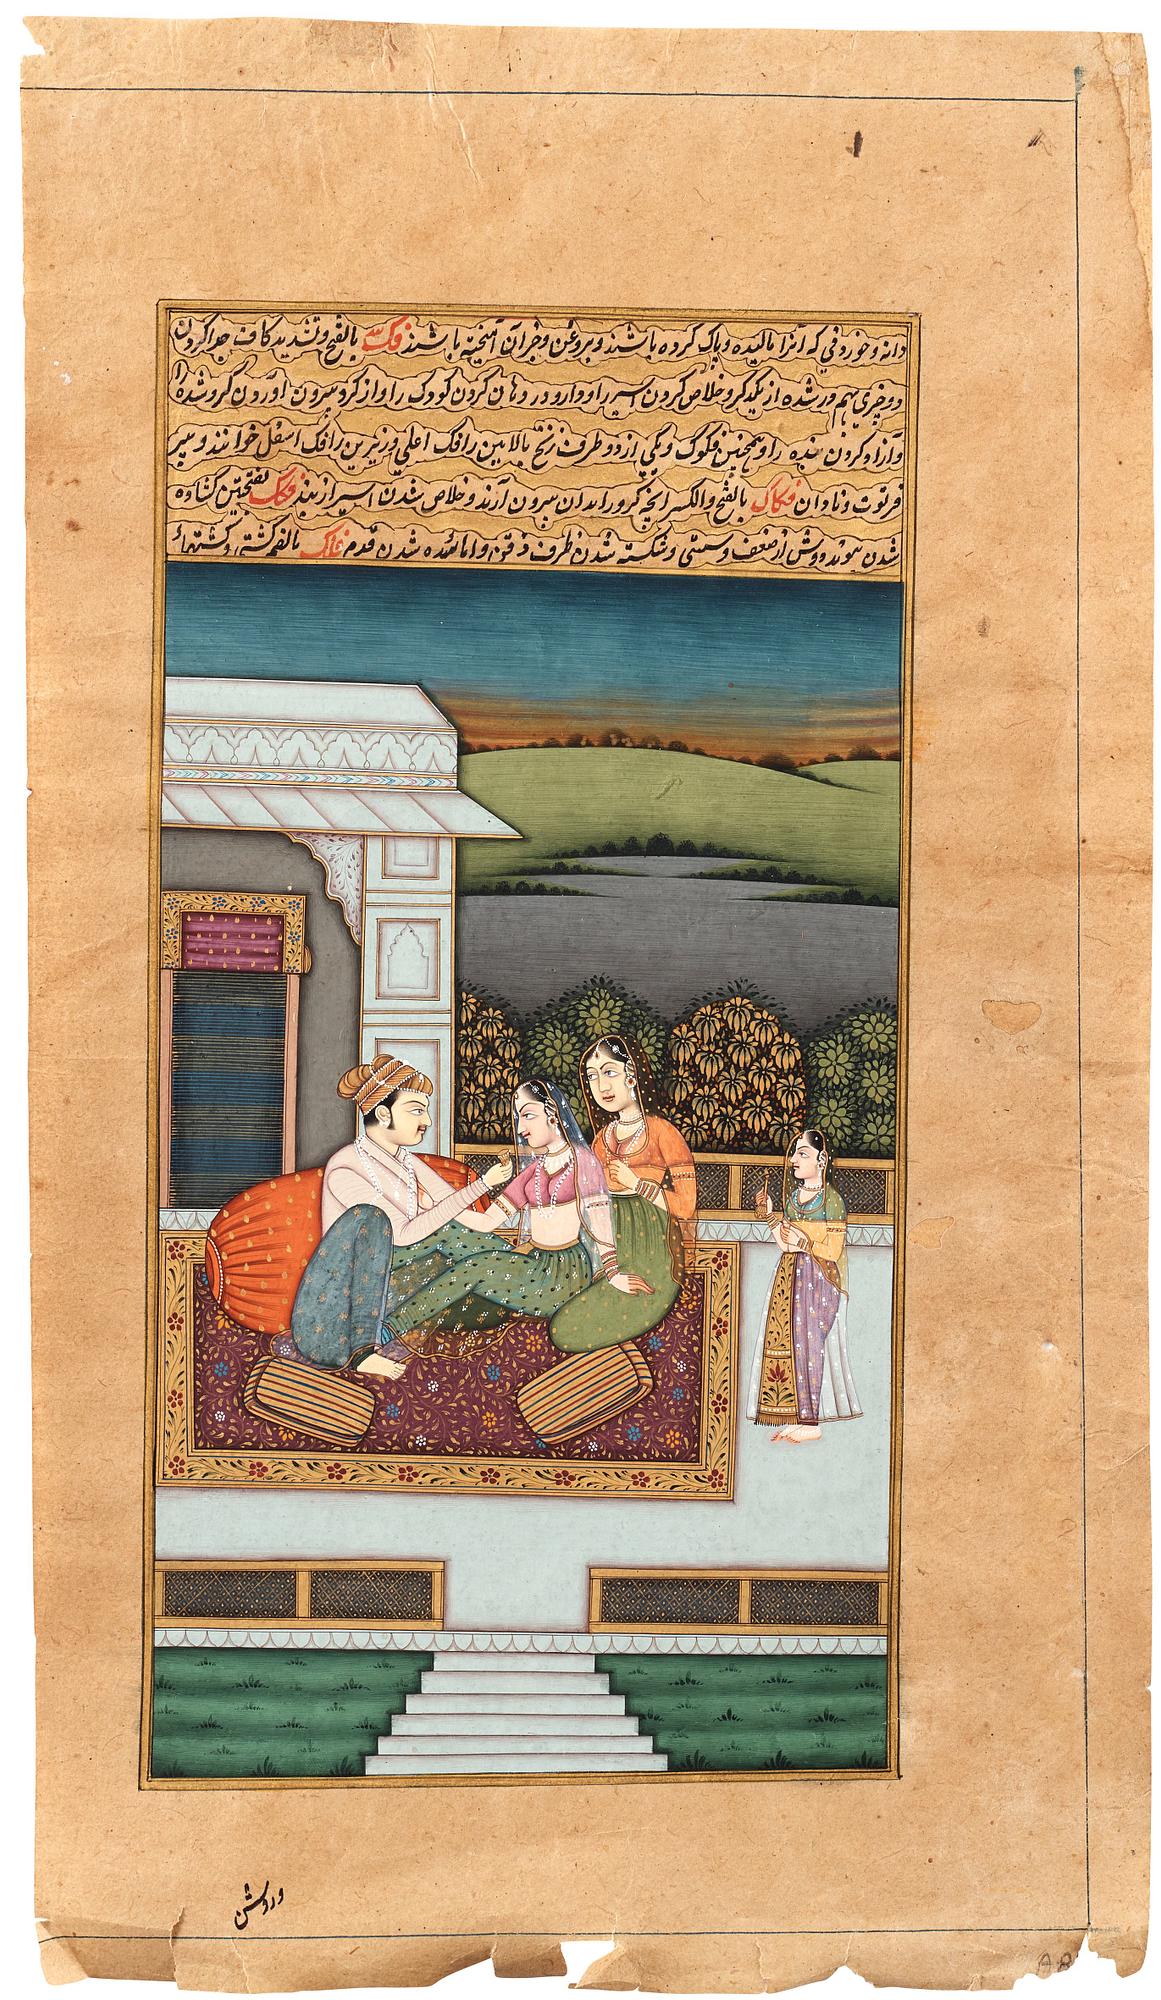 دانه و خوردنی که آنرا مالیده و پاک کرده باشند و بروغن و جزآن آمیخته باشند فکّ بالفتح و تشدید کاف جدا کردن
دو چیزی بهم در شده از یکدیگر و خلاص کردن اسیر را و دارو در دهان کردن کودک را و از کرو بیرون آوردن گرو شده را
و آزاد کردن بنده را و همچنین فکوک و یکی از دو طرف زنخ بالایین را فک اعلی و زیرین را فک اسفل خوانند و پیر
فرتوت و نادان فکاک بالفتح والکسر آنچه گرو را بدان بیرون آرند و خلاص شدن اسیر از بند فکک بفتحتین گشاده
شدن پیوند دوش از ضعف و سستی و شکسته شدن طرف ذقن و قدم فلک بالضم کشتی و کشتیها